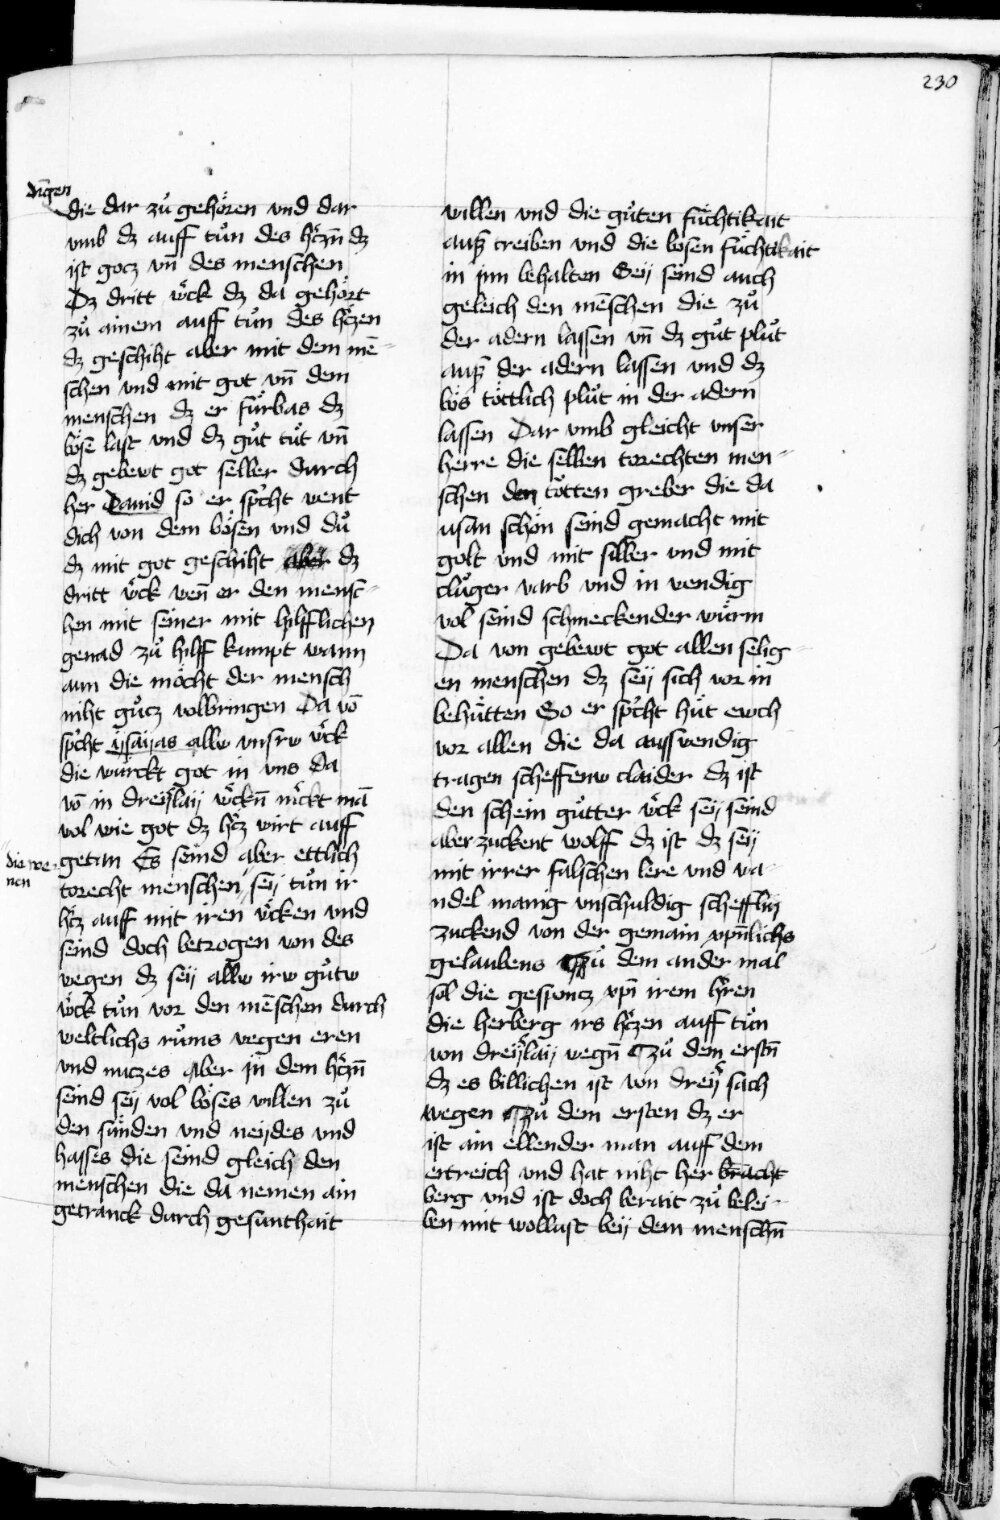 230
dingen
die dar zů gehören vnd dar
vmb dz auff tůn des hꝛ̄czn̄ dz
ist gocz vn̄ des menschen
Dz dritt wͤck dz da gehört
zů ainem auff tůn des hꝛ̄czen
dz geschiht aber mit dem mē-
schen vnd mit got vn̄ dem
menschen dz er fürbas dz
böse last vnd dz gůt tůt vn̄
dz gebewt got selber durch
her Dauid so er spͥcht went
dich von dem bösen vnd dů
dz mit got geschiht aber dz
dritt wͤck wen̄ er den mensc-
hen mit seiner mit hilfflichen
genad zů hilff kumpt wann
aun die möcht der mensch
niht gůcz volbringen Da vō
spͥcht ysaijas allw vnsrw wͤck
die würckt got in vns Da
vō in dreijᷓlaij wͤckn̄ mͤckt mā
wol wie got dz hꝛ̄cz wirt auff
getan Es seind aber ettlich
die we-
nen
torecht menschen / seij tůn ir
hꝛ̄cz auff mit iren wͤcken vnd
seind doch betrogen von des
wegen dz seij allw irw gůtw
wͤck tůn vor den mēschen durch
weltlichs růms wegen eren
vnd nuczes aber jn dem hꝛ̄czn̄
seind seij vol böses willen zů
den sünden vnd neijdes vnd
hasses die seind gleich den
menschen die da nemen ain
getranck durch gesunthait
willen vnd die gůten füchtikait
auß treiben vnd die bösen füchtikait
in jnn behalten Seij seind auch
geleich den mēschen die zů
der adern lassen vn̄ dz gůt plůt
auß der adern lassen vnd dz
bös töttlich plůt in der adern
lassen Dar vmb gleicht vnser
herre die selben torechten men-
schen den tötten greber die da
usan schön seind gemacht mit
golt vnd mit silber vnd mit
clůger varb vnd in wendig
vol seind schmeckender würm
Da von gebewt got allen selig-
en menschen dz seij sich vor in
behütten So er spͥcht hüt ewch
vor allen die da ausswendig
tragen scheffenw claider dz ist
den schein gůtter wͤck seij seind
aber zuckent wolff dz ist dz seij
mit irrer falschen lere vnd wa-
ndel manig vnschuldig schefflin
zuckend von der gemain xpn̄lichs
gelaubens Zů dem ander mal
sol die gesponcz xpī irem hꝛ̄ren
die herberg irs hꝛ̄czen auff tůn
von dreijᷓlaij wegn̄ Zů dem erstn̄
dz es billichen ist von dreijᷓ sach
wegen Zů dem ersten dz er
ist ain ellender man auff dem
ertreich vnd hat niht her bracht
berg vnd ist doch berait zů belei-
ben mit wollust beij dem menschn̄